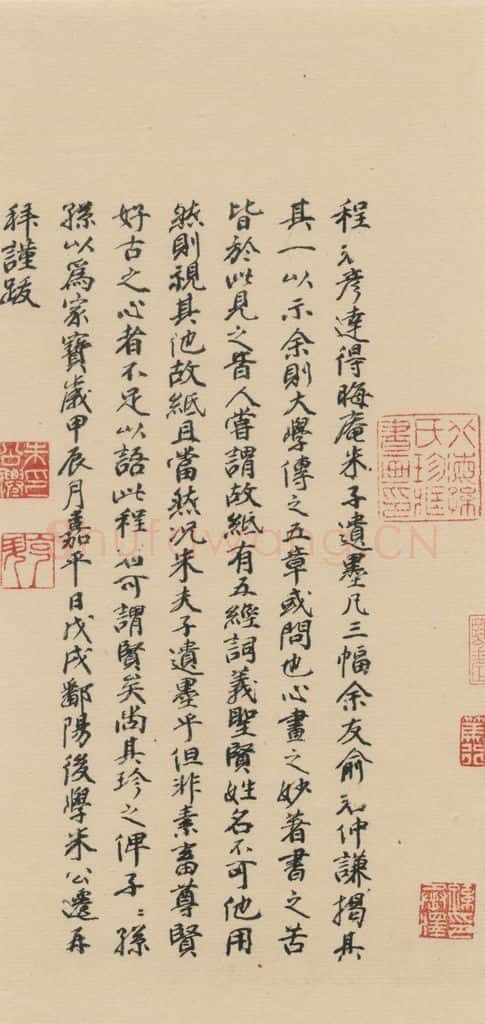 程元彥達得晦庵朱子遺墨凡三幅余友俞元仲謙揭其
其一以示余則大學傳之五章或問也心畫之妙著書之苦
皆於此見之昔人嘗謂故紙有五經詞義聖賢姓名不可他用
然則視其他故紙且當然况朱夫子遺墨乎但非素蓄尊賢
好古之心者不足以語此程 可謂賢矣尚其珍之俾子〻孫
孫以為家寶歲甲辰月嘉平日戊戌鄱陽後學朱公遷再
拜謹跋
shufawang.CN